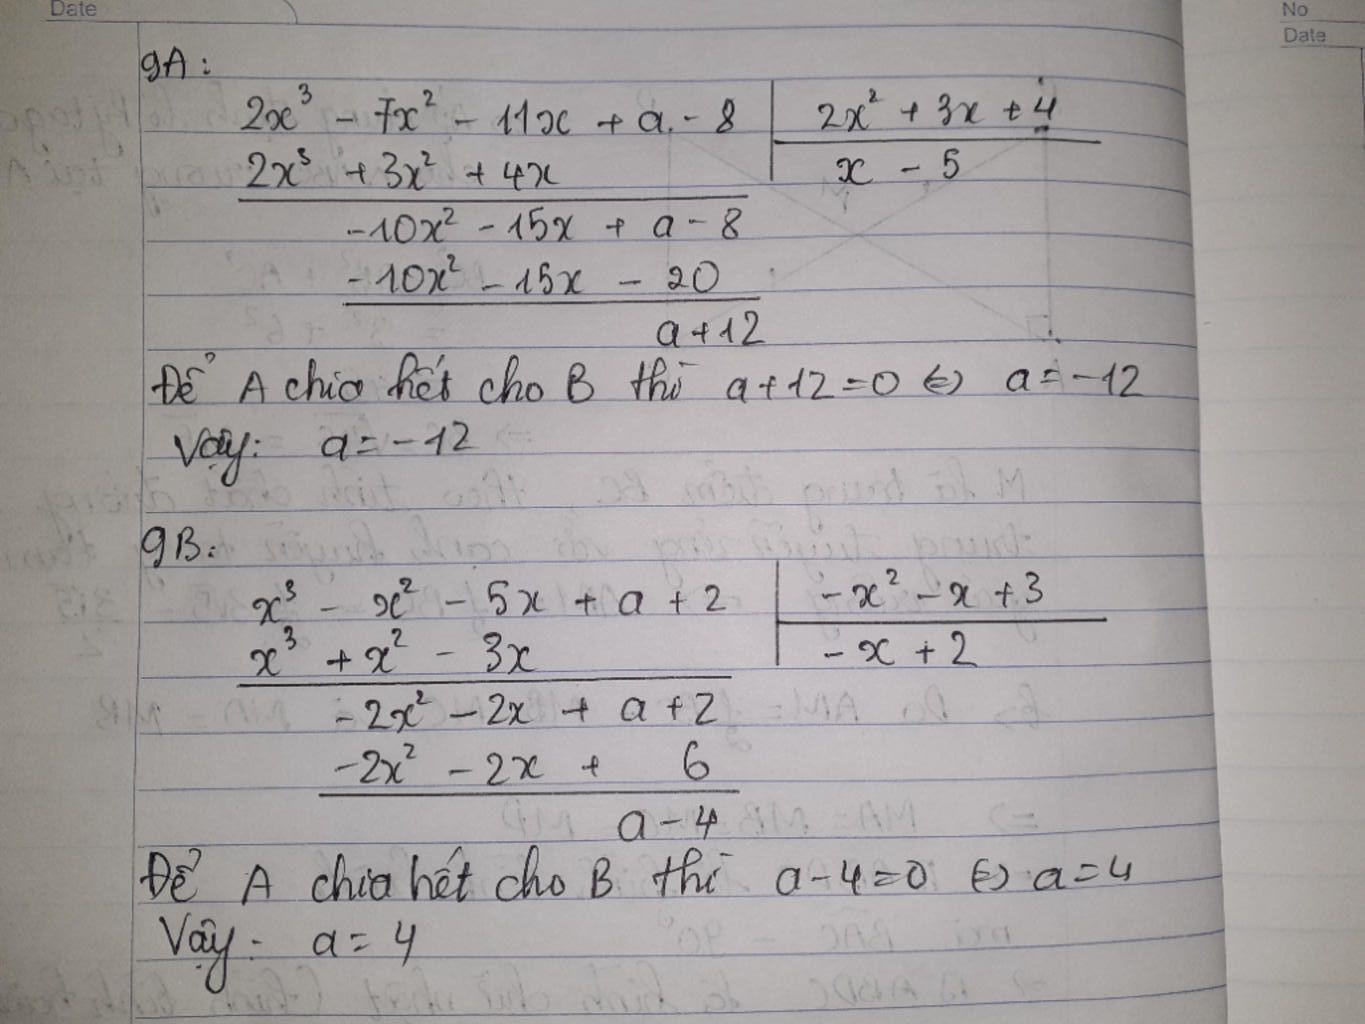 Date
No
Date
9A:
2x³ - 7x² - 11x + a - 8 | 2x² + 3x + 4
2x³ + 3x² + 4x | x - 5
-10x² - 15x + a - 8
-10x² - 15x - 20
a + 12
Để A chia hết cho B thì a + 12 = 0 ⇔ a = -12
Vậy: a = -12
9B:
x³ - x² - 5x + a + 2 | -x² - x + 3
x³ + x² - 3x | -x + 2
-2x² - 2x + a + 2
-2x² - 2x + 6
a - 4
Để A chia hết cho B thì a - 4 = 0 ⇔ a = 4
Vậy: a = 4